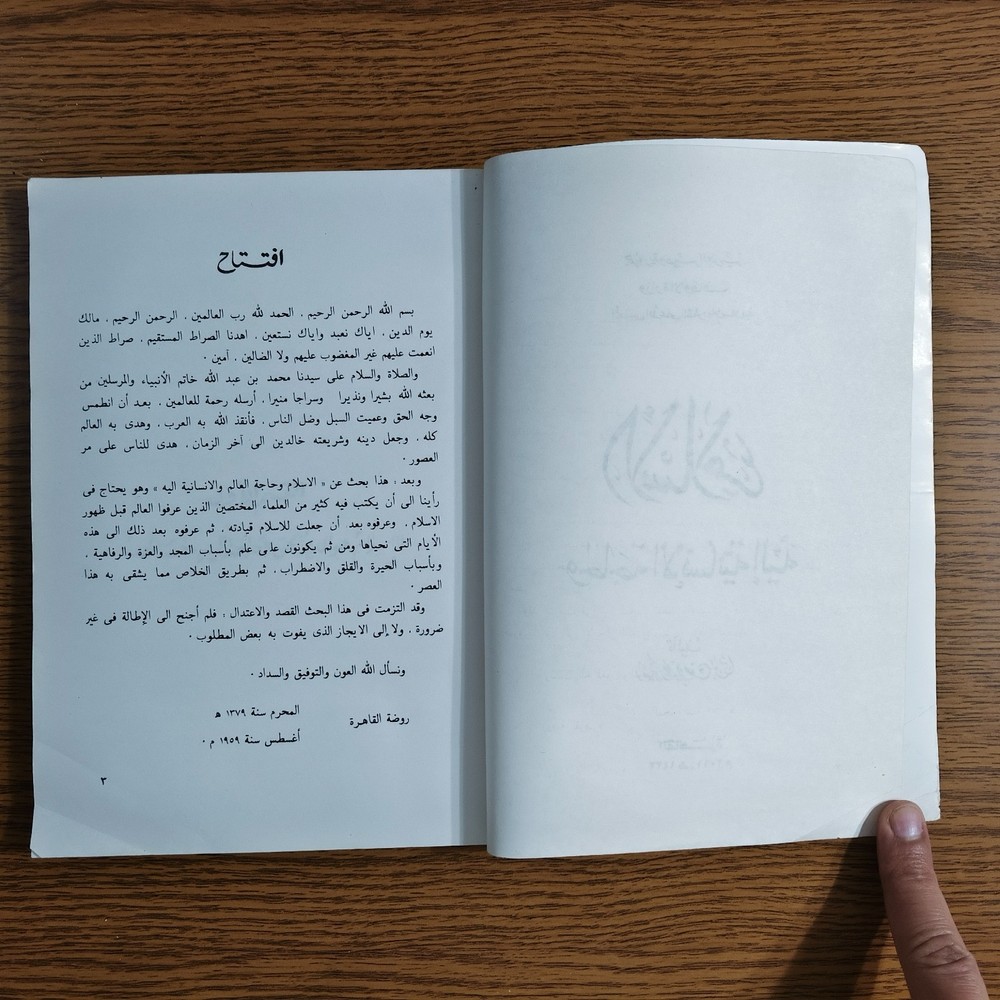 افتتاح
بسم الله الرحمن الرحيم . الحمد لله رب العالمين . الرحمن الرحيم . مالك
يوم الدين . اياك نعبد واياك نستعين . اهدنا الصراط المستقيم . صراط الذين
انعمت عليهم غير المغضوب عليهم ولا الضالين . آمين .
والصلاة والسلام على سيدنا محمد بن عبد الله خاتم الأنبياء والمرسلين من
بعثه الله بشيرا ونذيرا وسراجا منيرا . أرسله رحمة للعالمين . بعد أن انطمس
وجه الحق وعميت السبل وضل الناس . فأنقذ الله به العرب . وهدى به العالم
كله . وجعل دينه وشريعته خالدين الى آخر الزمان . هدى للناس على مر
العصور .
وبعد : هذا بحث عن « الاسلام وحاجة العالم والانسانية اليه » وهو يحتاج فى
رأينا الى أن يكتب فيه كثير من العلماء المختصين الذين عرفوا العالم قبل ظهور
الاسلام . وعرفوه بعد أن جعلت للاسلام قيادته . ثم عرفوه بعد ذلك الى هذه
الأيام التى نحياها ومن ثم يكونون على علم بأسباب المجد والعزة والرفاهية .
وبأسباب الحيرة والقلق والاضطراب . ثم بطريق الخلاص مما يشقى به هذا
العصر .
وقد التزمت فى هذا البحث القصد والاعتدال : فلم أجنح الى الإطالة فى غير
ضرورة . ولا إلى الايجاز الذى يفوت به بعض المطلوب .
ونسأل الله العون والتوفيق والسداد .
روضة القاهرة
المحرم سنة ١٣٧٩ ه
أغسطس سنة ١٩٥٩ م .
٣
الإسلام
وحاجة الإنسانية إليه